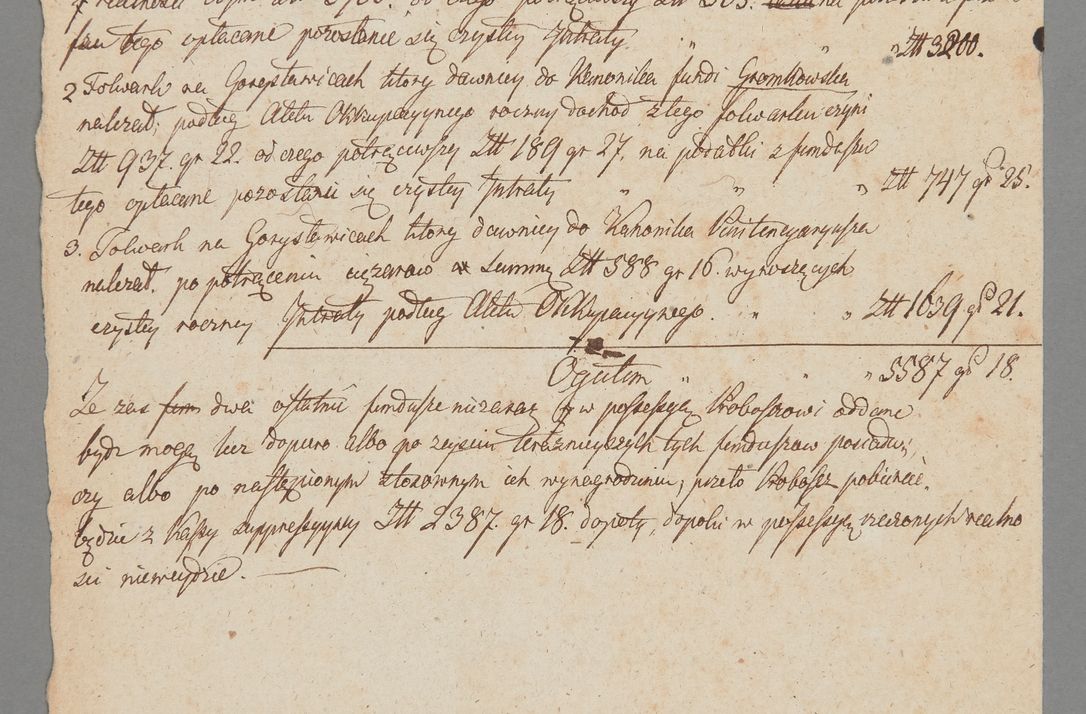 tego opłacane pozostanie się czystey Intraty " " " Ztt 3200.
2 Folwark na Gorysławicach ktory dawniey do Kanonika fundi Gromkowska
nalezał; podług Aktu Okkupacyynego roczny dochod z tego folwarku czyni
Ztt 937. gr 22. od czego potrąciwszy Ztt 189 gr 27. na podatki z funduszu
tego opłacane pozostanie się czystey Intraty " " " Ztt 747 gr 25.
3. Folwark na Gorysławicach ktory dawniey do Kanonika Penitencyaryusza
nalezał. po potrąceniu cięzarow summę Ztt 588 gr 16. wynoszących
czystey roczney Intraty podług Aktu Okkupacyynego. " " Ztt 1639 gr 21.
Ogułem " " " 5587 gr 18.
Ze zas dwa ostatnie fundusze niezaraz w possessyą Proboszczowi oddane
bydz mogą lecz dopiero albo po zeyściu teraznieyszych tych funduszow posiadaczy,
czy albo po nastąpionym stosownym ich wynagrodzeniu, przeto Proboszcz pobierać
będzie z Kassy suppressyyney Ztt 2387. gr 18. dopoty, dopoki w possessyą rzeczonych realno
sci niewejdzie.